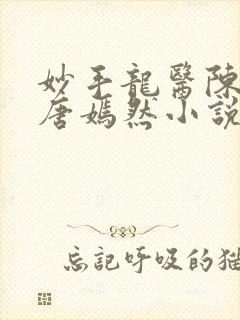 妙手龍醫陳
唐嫣然小說
忘記呼吸的猫